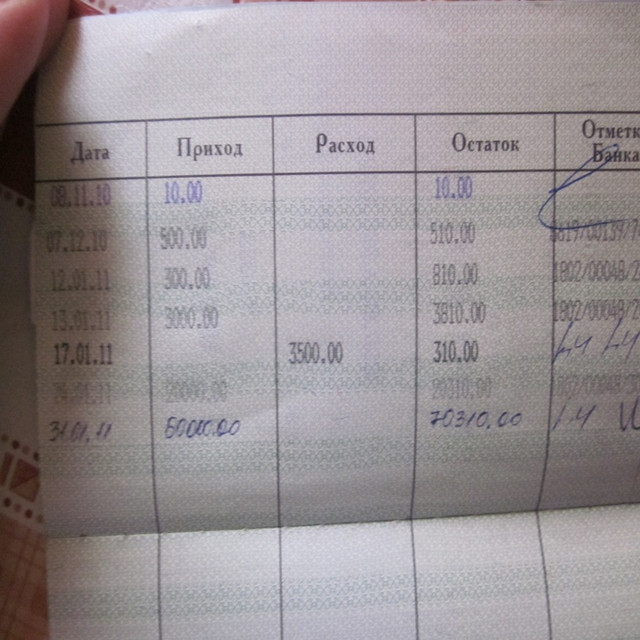 Дата Приход Расход Остаток Отметк
Банка
08.11.10 10.00 10.00
07.12.10 500.00 510.00
12.01.11 300.00 810.00 1802/00048/2
13.01.11 3000.00 3810.00 1802/00048/2
17.01.11 3500.00 310.00
20000.00 20310.00
31.01.11 70310,00